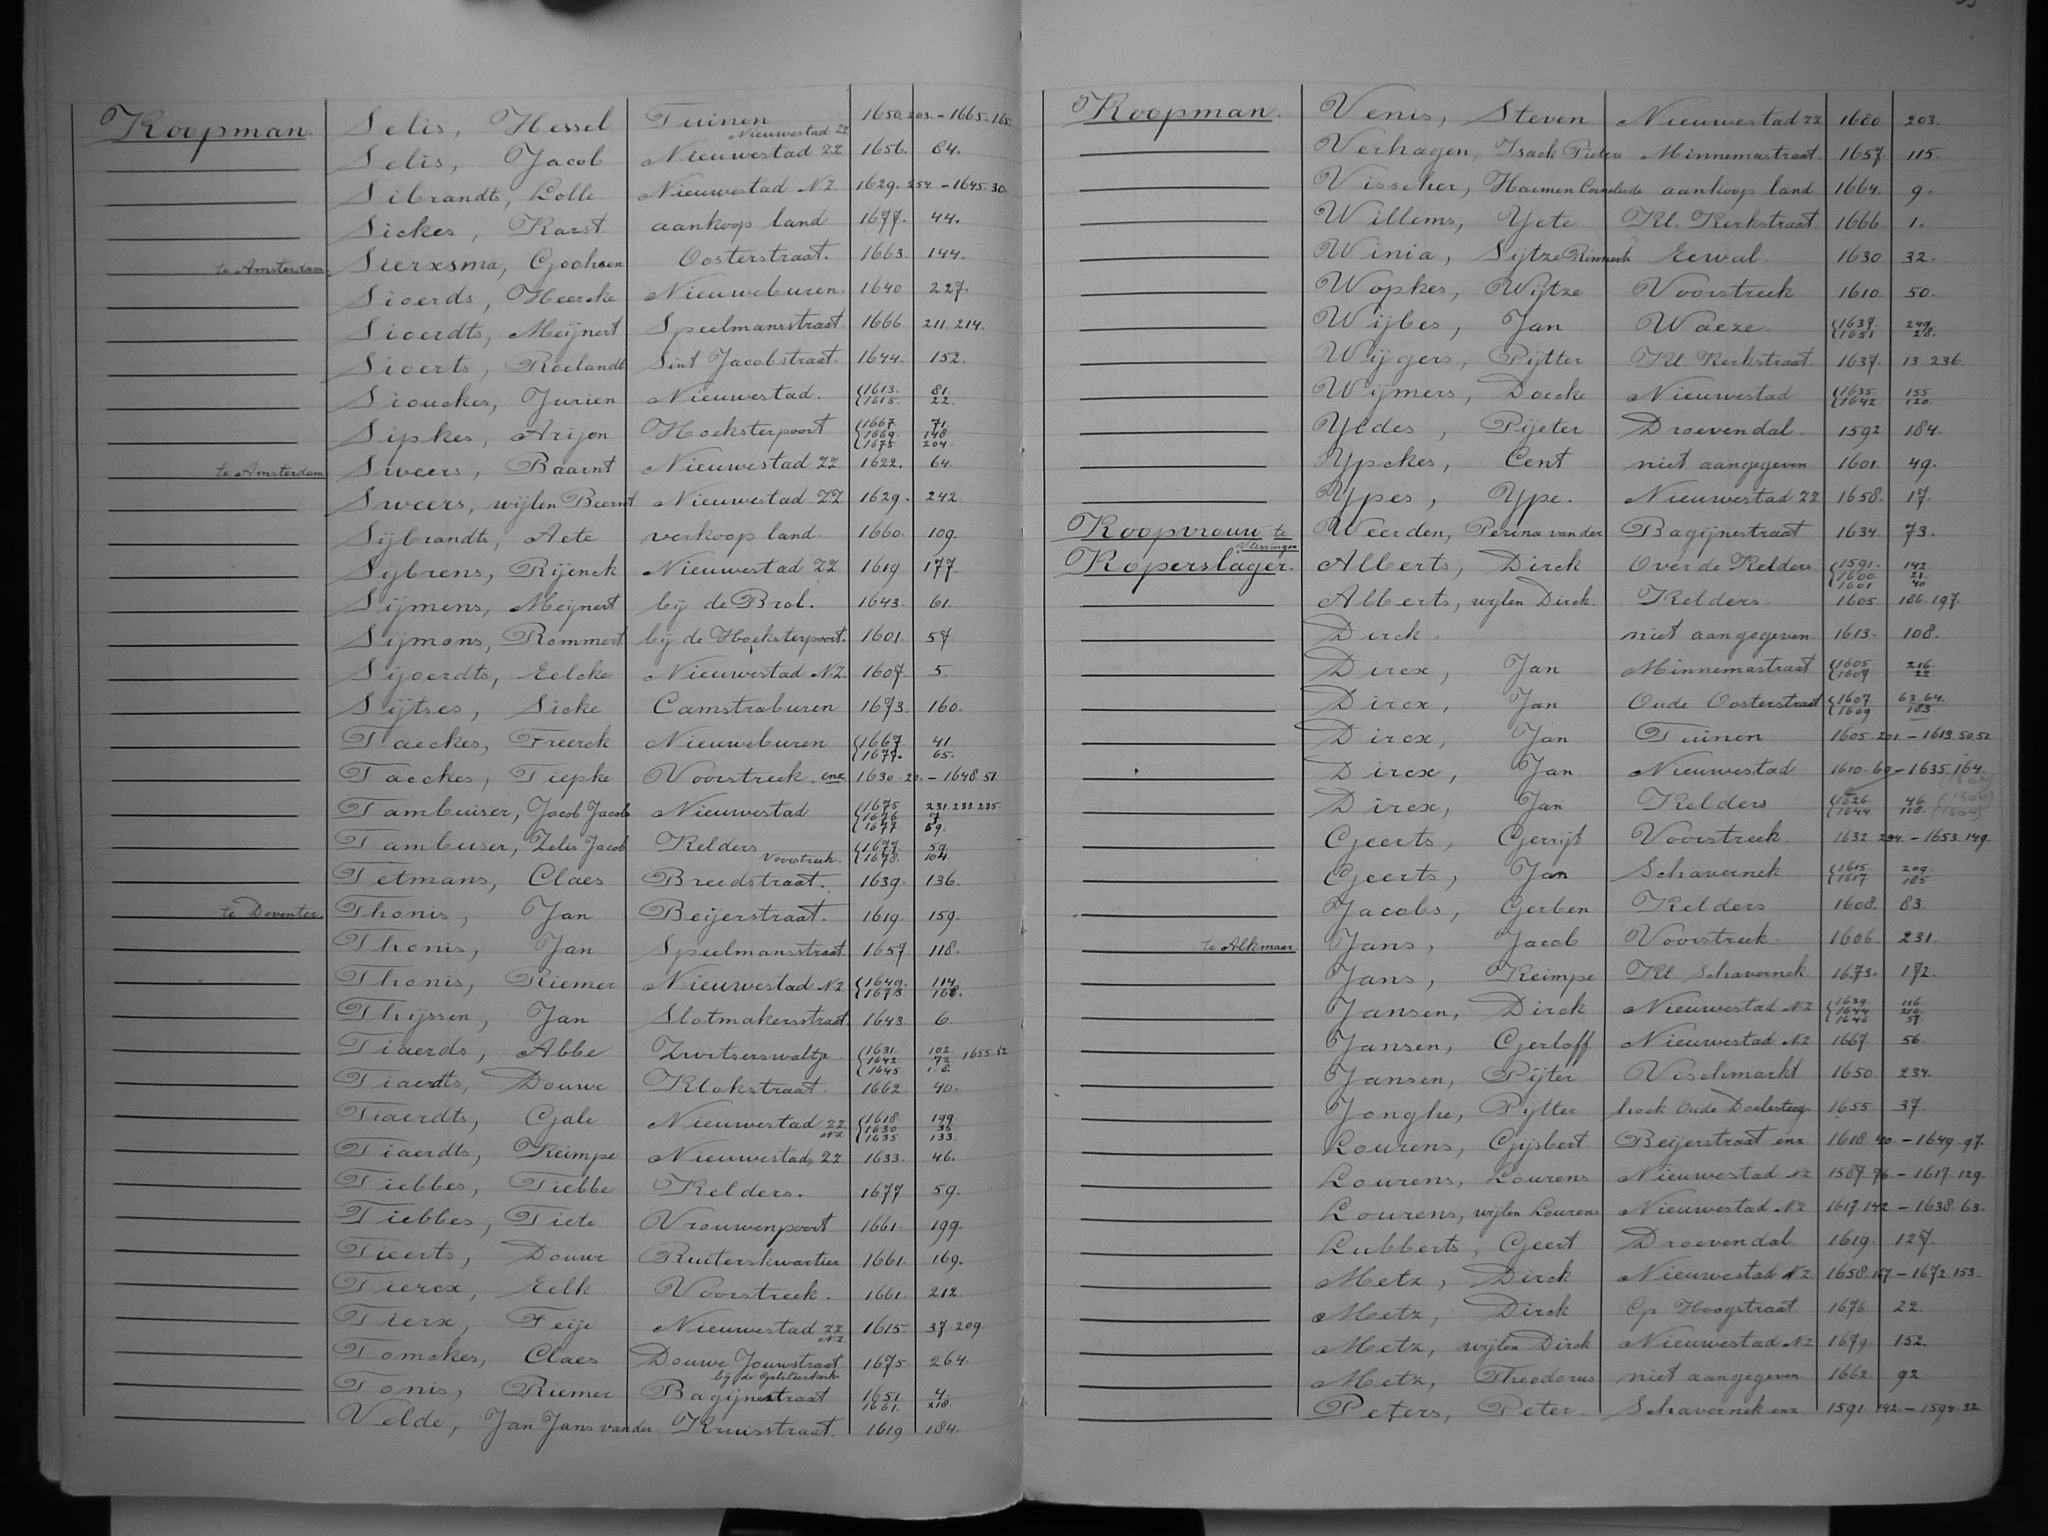 Koopman. Selis, Hessel Tuinen 1650. 203. – 1665. 165.
Nieuwestad ZZ
Selis, Jacob Nieuwestad ZZ 1656. 84.
Sibrandts, Lolle Nieuwestad NZ 1629. 254. – 1645. 30.
Sickes, Karst aankoop land 1677. 44.
te Amsterdam. Sierxsma, Goohsen Oosterstraat. 1663. 144.
Sioerds, Heercke Nieuweburen. 1640 227.
Sioerdts, Meijnert Speelmansstraat. 1666 211. 214.
Sioerts, Roelandt Sint Jacobstraat. 1644. 152.
Siouckes, Jurien Nieuwestad. 1613. 81.
1615. 22.
Sipkes, Arijen Hoeksterpoort 1667. 71.
1669. 148
1675 204.
te Amsterdam Sweers, Baarnt Nieuwestad ZZ 1622. 64.
Sweers, wijlen Beernt Nieuwestad ZZ 1629. 242.
Sijbrandts, Aete verkoop land. 1660. 109.
Sybrens, Rijenck Nieuwestad ZZ 1619 177.
Sijmens, Meijnert bij de Brol. 1643. 61.
Sijmons, Rommert bij de Hoeksterpoort. 1601. 57.
Sijoerdts, Eelcke Nieuwestad NZ. 1607 5.
Sijtses, Sicke Camstraburen 1673. 160.
Taeckes, Freerck Nieuweburen 1667. 41
1677. 65.
Taeckes, Tiepke Voorstreek. enz 1630. 20. – 1648. 51.
Tambuiser, Jacob Jacobs Nieuwestad 1675 231. 233. 235.
1676 7.
1677 59.
Tambuser, Zelis Jacob Kelders 1677. 59.
Voorstreek. 1678. 104.
Tetmans, Claes Breedstraat. 1639. 136.
te Deventer. Thonis, Jan Beijerstraat. 1619. 159.
Thonis, Jan Speelmansstraat. 1657 118.
Thonis, Riemer Nieuwestad NZ 1649. 114.
1673. 168.
Thijssen, Jan Slotmakersstraat 1643 6.
Tiaerds, Abbe Zwitserswaltje 1631. 102. 1655. 52
1642 72
1645
Tiaerdts, Douwe Klokstraat. 1662. 40.
Tiaerdts, Gale Nieuwestad ZZ 1618 199
NZ 1630 35
1635 133.
Tiaerdts, Reimpe Nieuwestad, ZZ 1633. 46.
Tiebbes, Tiebbe Kelders. 1677 59.
Tiebbes, Tiete Vrouwenpoort 1661. 199.
Tieerts, Douwe Ruiterskwartier 1661. 169.
Tierex, Eelk Voorstreek. 1661. 212.
Tierx, Feije Nieuwestad ZZ 1615. 37. 209
NZ
Tomckes, Claes Douwe Jouwstraat 1675 264.
bij de Galileerkerk
Tonis, Riemer Bagijnestraat 1651. 4.
1661. 218.
Velde, Jan Jans van der Kruisstraat. 1619 184.
Koopman. Venis, Steven Nieuwestad ZZ 1680 203.
Verhagen, Isack Pieters Minnemastraat. 1657. 115.
Visscher, Harmen Cornelisde aankoop land 1664. 9.
Willems, Yete Kl. Kerkstraat 1666. 1.
Winia, Sijtze Rinnerts Eewal. 1630. 32.
Wopkes, Wijtze Voorstreek 1610. 50.
Wijbes, Jan Waeze. 1637. 249.
1651 28.
Wijgers, Pijtter Kl. Kerkstraat. 1637. 13 236.
Wijmers, Doecke Nieuwestad 1635. 155
1642 120.
Yedes, Pijeter Droevendal. 1592. 184.
Ypckes, Cent niet aangegeven 1601. 49.
Ypes, Ype. Nieuwestad ZZ 1658. 17.
Koopvrouw te Weerden, Perina van der Bagijnestraat 1634. 73.
Vlissingen
Koperslager. Alberts, Dirck Over de Kelders 1591. 142
1600 21.
1601 40
Alberts, wijlen Dirck. Kelders. 1605 186. 197.
Dirck. niet aangegeven 1613. 108.
Dircx, Jan Minnemastraat 1605 216.
1607 22
Dircx, Jan Oude Oosterstraat 1607 63. 64.
1609 183.
Dircx, Jan Tuinen 1605. 201. – 1613. 50. 51.
Dircx, Jan Nieuwestad 1610. 69 – 1635. 164.
Dircx, Jan Kelders 1626. 46.
1644. 118.
Geerts, Gerrijt Voorstreek. 1632 234. – 1653. 149.
Geerts, Jan Schavernek 1615 209.
1617 185
Jacobs, Gerben Kelders 1608. 83.
te Alkmaar. Jans, Jacob Voorstreek. 1606. 231.
Jans, Reimpe Kl. Schavernek. 1673. 172.
Jansen, Dirck Nieuwestad NZ 1639. 116.
1644 216.
1646 57.
Jansen, Gerloff Nieuwestad NZ 1667. 56.
Jansen, Pijter Vischmarkt 1650 234.
Jonghe, Pijtter hoek Oude Doelesteeg 1655 37.
Lourens, Gijsbert Beijerstraat enz 1618 40 – 1649. 97.
Lourens, Lourens Nieuwestad NZ 1587. 76 – 1617. 129.
Lourens, wijlen Lourens Nieuwestad NZ 1617. 142 – 1638. 63.
Lubberts, Geert Droevendal. 1619. 127.
Metz, Dirck Nieuwestad NZ 1658. 167 – 1672. 153.
Metz, Dirck Gr Hoogstraat 1676 22.
Metz, wijlen Dirck Nieuwestad NZ 1679 152.
Metz, Theodorus niet aangegeven 1662. 92
Peters, Peter Schavernek enz 1591 142. – 1594. 32